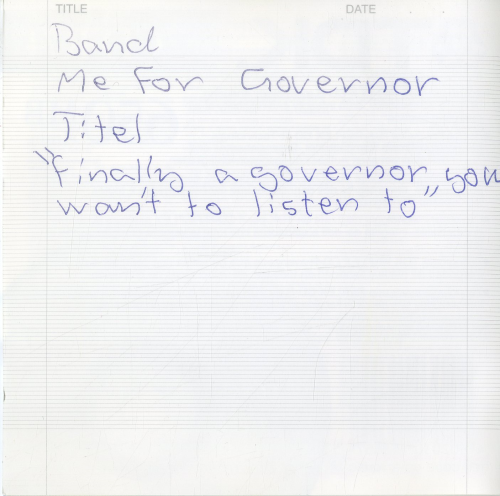 TITLE DATE
Band
Me For Governor
Titel
"Finally a governor, you
want to listen to"